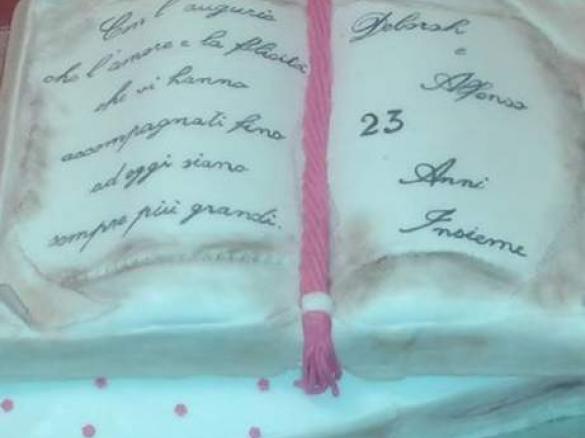 Con l'augurio
che l'amore e la felicità
che vi hanno
accompagnati fino
ad oggi siano
sempre più grandi.
Deborah
e
Alfonso
23
Anni
Insieme